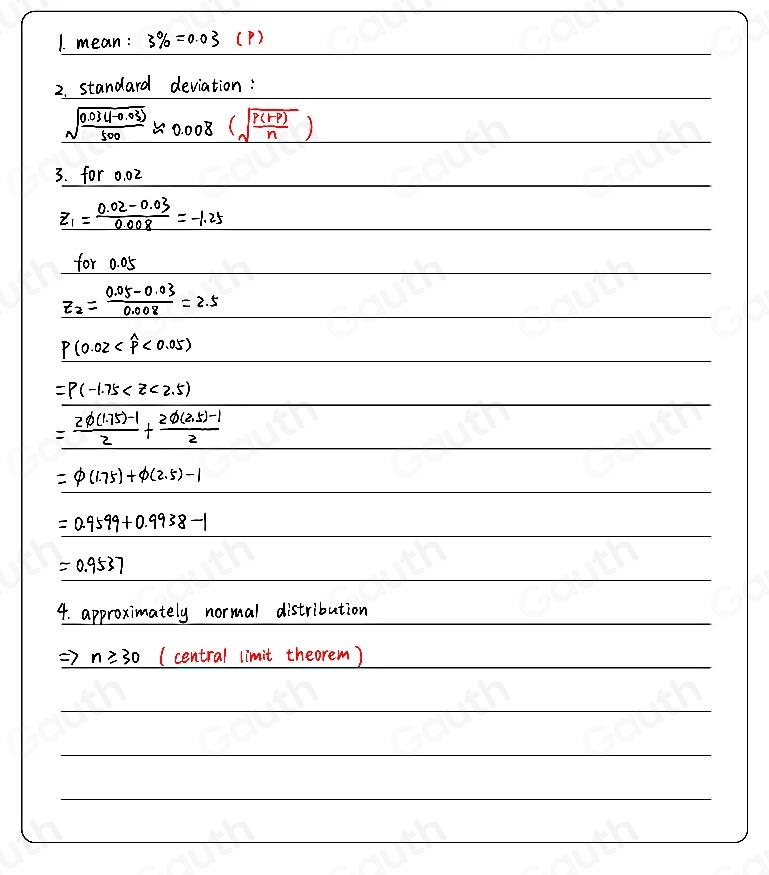 1. mean: 3% = 0.03 (P)
2. standard deviation:
√(0.03(1-0.03)/500) ≈ 0.008 (√(P(1-P)/n))
3. for 0.02
z₁ = (0.02-0.03)/0.008 = -1.25
for 0.05
z₂ = (0.05-0.03)/0.008 = 2.5
P(0.02 < p̂ < 0.05)
= P(-1.75 < z < 2.5)
= (2Φ(1.75)-1)/2 + (2Φ(2.5)-1)/2
= Φ(1.75)+Φ(2.5)-1
= 0.9599+0.9938-1
= 0.9537
4. approximately normal distribution
⇒ n ≥ 30 (central limit theorem)